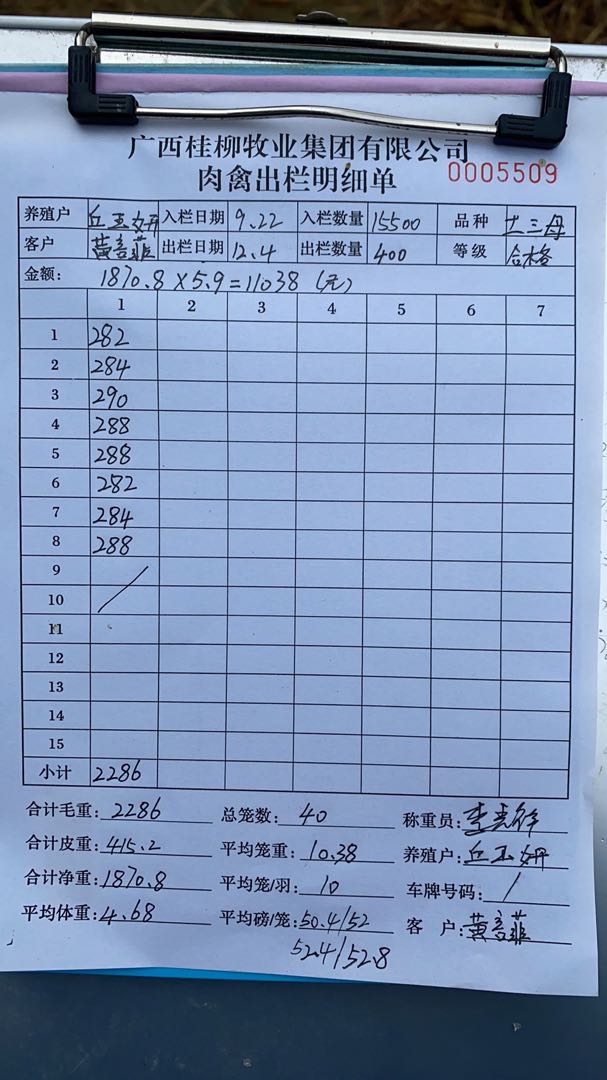 广西桂柳牧业集团有限公司
肉禽出栏明细单 0005509
养殖户 丘玉妍 入栏日期 9.22 入栏数量 15500 品种 土三母
客户 黄言菲 出栏日期 12.4 出栏数量 400 等级 合格
金额: 1870.8×5.9=11038 (元)
1 2 3 4 5 6 7
1 282
2 284
3 290
4 288
5 288
6 282
7 284
8 288
9
10
11
12
13
14
15
小计 2286
合计毛重: 2286 总笼数: 40 称重员:
合计皮重: 415.2 平均笼重: 10.38 养殖户: 丘玉妍
合计净重: 1870.8 平均笼/羽: 10 车牌号码: /
平均体重: 4.68 平均磅/笼: 50.4/52 客户: 黄言菲
52.4/52.8